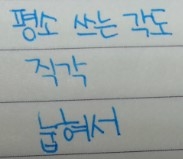 평소 쓰는 각도
직각
눕혀서